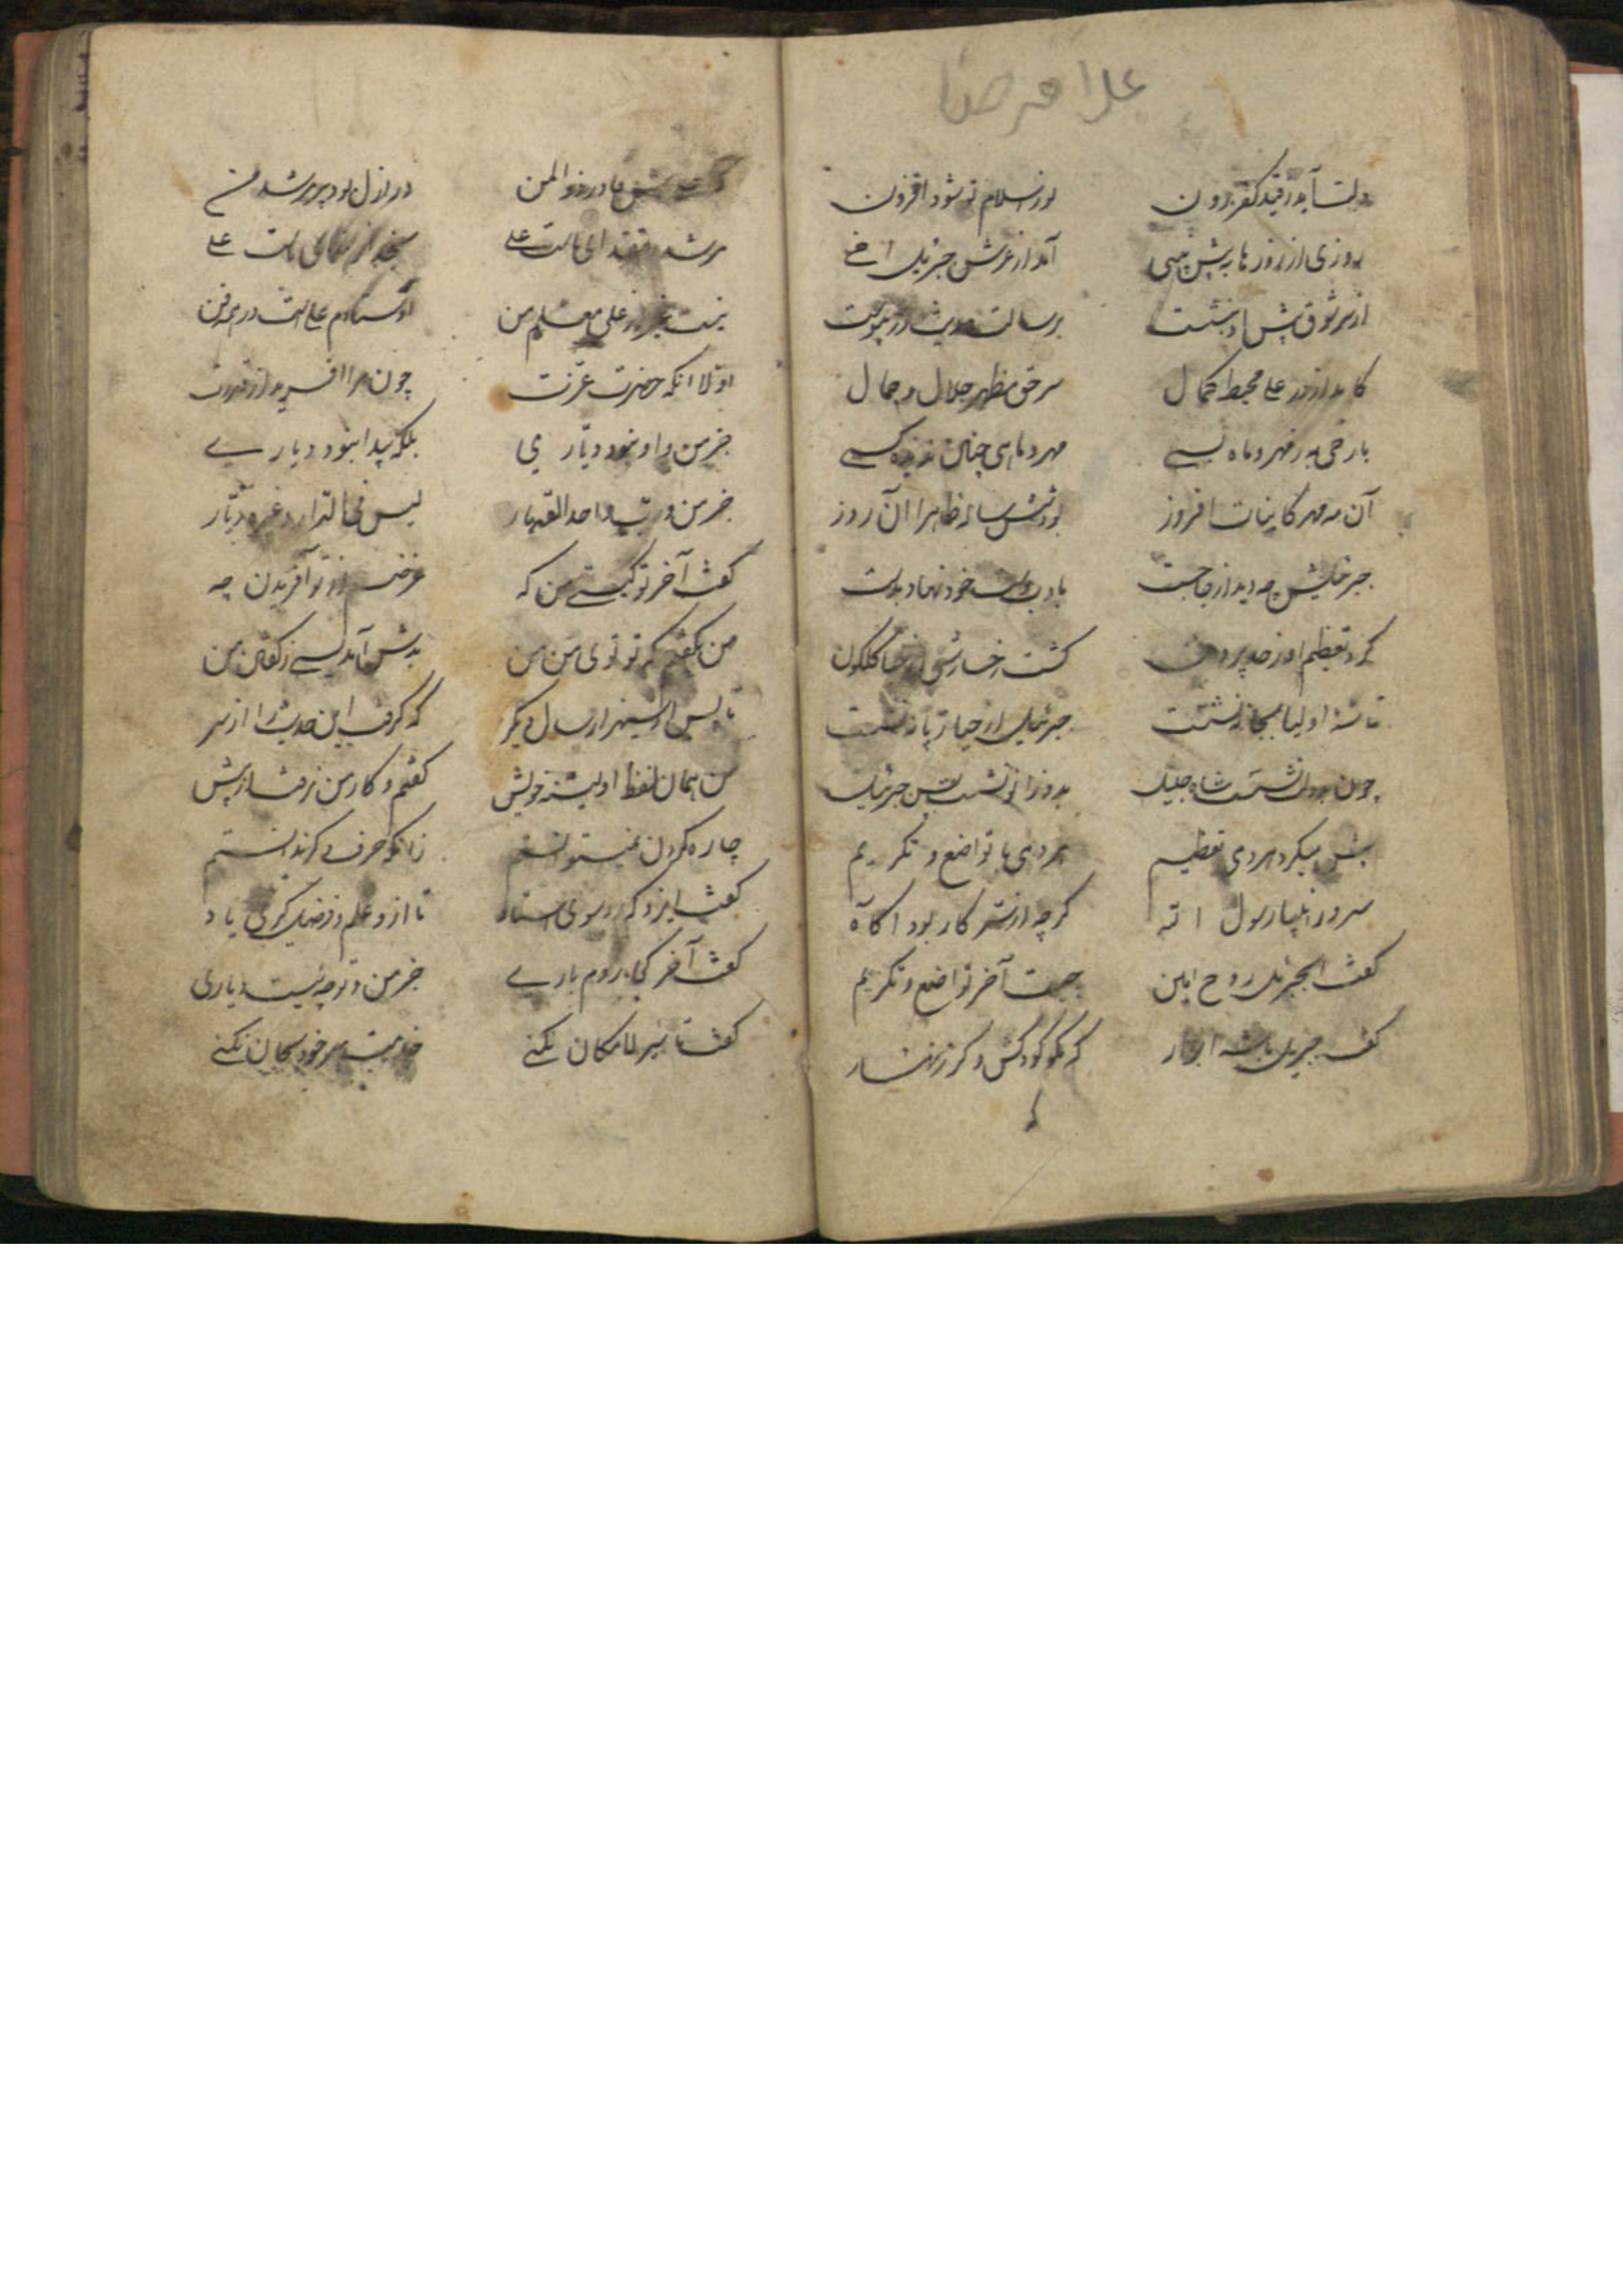 دلت آید ز قید کفر برون نور اسلام تو شود افزون
روزی از روزها به پیش نبی آمد از عرش جبرئیل اخی
از سر شوق پیش او بنشست برسالت حدیث در پیوست
کامد از در علی محیط کمال سر حق مظهر جلال و جمال
با رخی به ز مهر و ماه بسی مهر و ماهی چنان ندیده کسی
آن مه و مهر کاینات افروز بود شش ساله ظاهرا آن روز
جبرئیلش چه دید از جا جست با ادب دست خود نهاد بدست
کرد تعظیم او ز حد بیرون گشت رخسارش از حیا گلگون
تا شه اولیا بجا ننشست جبرئیل از حیا ز پا ننشست
چون بدولت نشست شاه جلیل بدو زانو نشست پس جبرئیل
پیش میکرد هر دمی تعظیم هر دمی با تواضع و تکریم
سرور انبیا رسول اله گرچه از سر کار بود آگاه
گفت ای جبرئیل روح امین چیست آخر تواضع و تکریم
گفت جبریل با شه ابرار که مگو کودکش دگر زنهار
در ازل بود پیر مرشد من
مرشد و مقتدای ماست علی
نیست جز از علی معلم من اوستادم علی است در همه فن
اولا آنکه حضرت عزت چون مرا آفرید از قدرت
جز من و او نبود دیاری بلکه پیدا نبود دیاری
جز من و رب واحد القهار لیس فی الدار غیره دیار
گفت آخر تو کیستی من که غرض از تو آفریدن چه
من بگفتم که تو توی من من بدش آمد بسی ز گفتن من
تا پس از سی هزار سال دگر که گرفت این حدیث را از سر
من همان لفظ اولینه خویش گفتم و کار من نرفت از پیش
چاره کردن نمیتوانستم زانکه حرف دگر ندانستم
گفت ایزد که رو سوی استاد تا ازو علم و فضل گیری یاد
گفت آخر کجا روم باری جز من و تو چه نیست دیاری
گفت تا سیر لامکان نکنی خدمت سر خود بجان نکنی